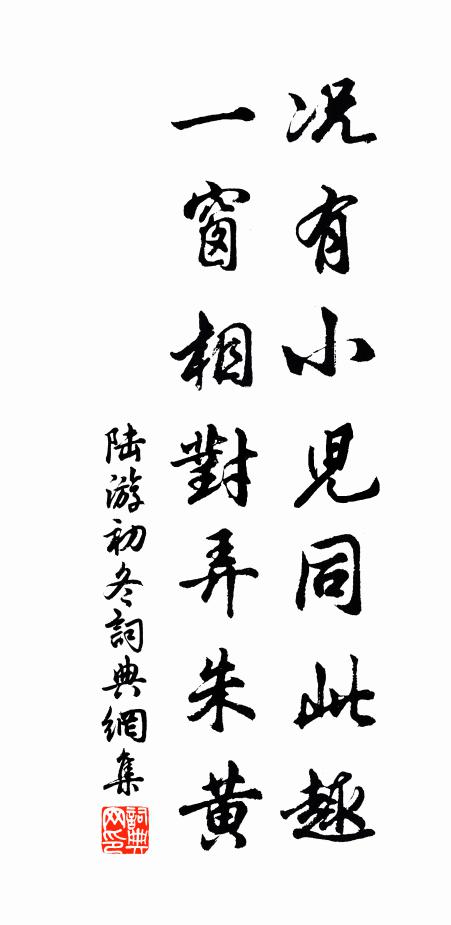 况有小児同此趣
一窗相對弄朱黃
陸游初冬詞典網集
詞典
网印